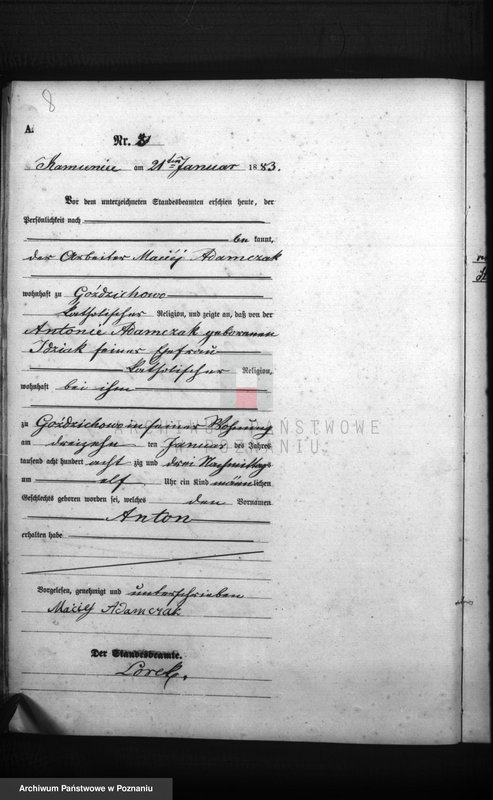 8
A.
Nr.
Kamieniec am 21ten Januar 1883.
Vor dem unterzeichneten Standesbeamten erschien heute, der
Persönlichkeit nach
bekannt,
der Arbeiter Maciej Adamczak
wohnhaft zu Goździchowo
katholischer Religion, und zeigte an, daß von der
Antonie Adamczak geborenen
Idziak seiner Ehefrau
katholischer Religion,
wohnhaft bei ihm
zu Goździchowo in seiner Wohnung
am dreizehn ten Januar des Jahres
tausend acht hundert acht zig und drei Nachmittags
um elf Uhr ein Kind männlichen
Geschlechts geboren worden sei, welches den Vornamen
Anton
erhalten habe
Vorgelesen, genehmigt und unterschrieben
Maciej Adamczak
Der Standesbeamte.
Lorek.
ARCHIWUM PAŃSTWOWE
W POZNANIU
Archiwum Państwowe w Poznaniu